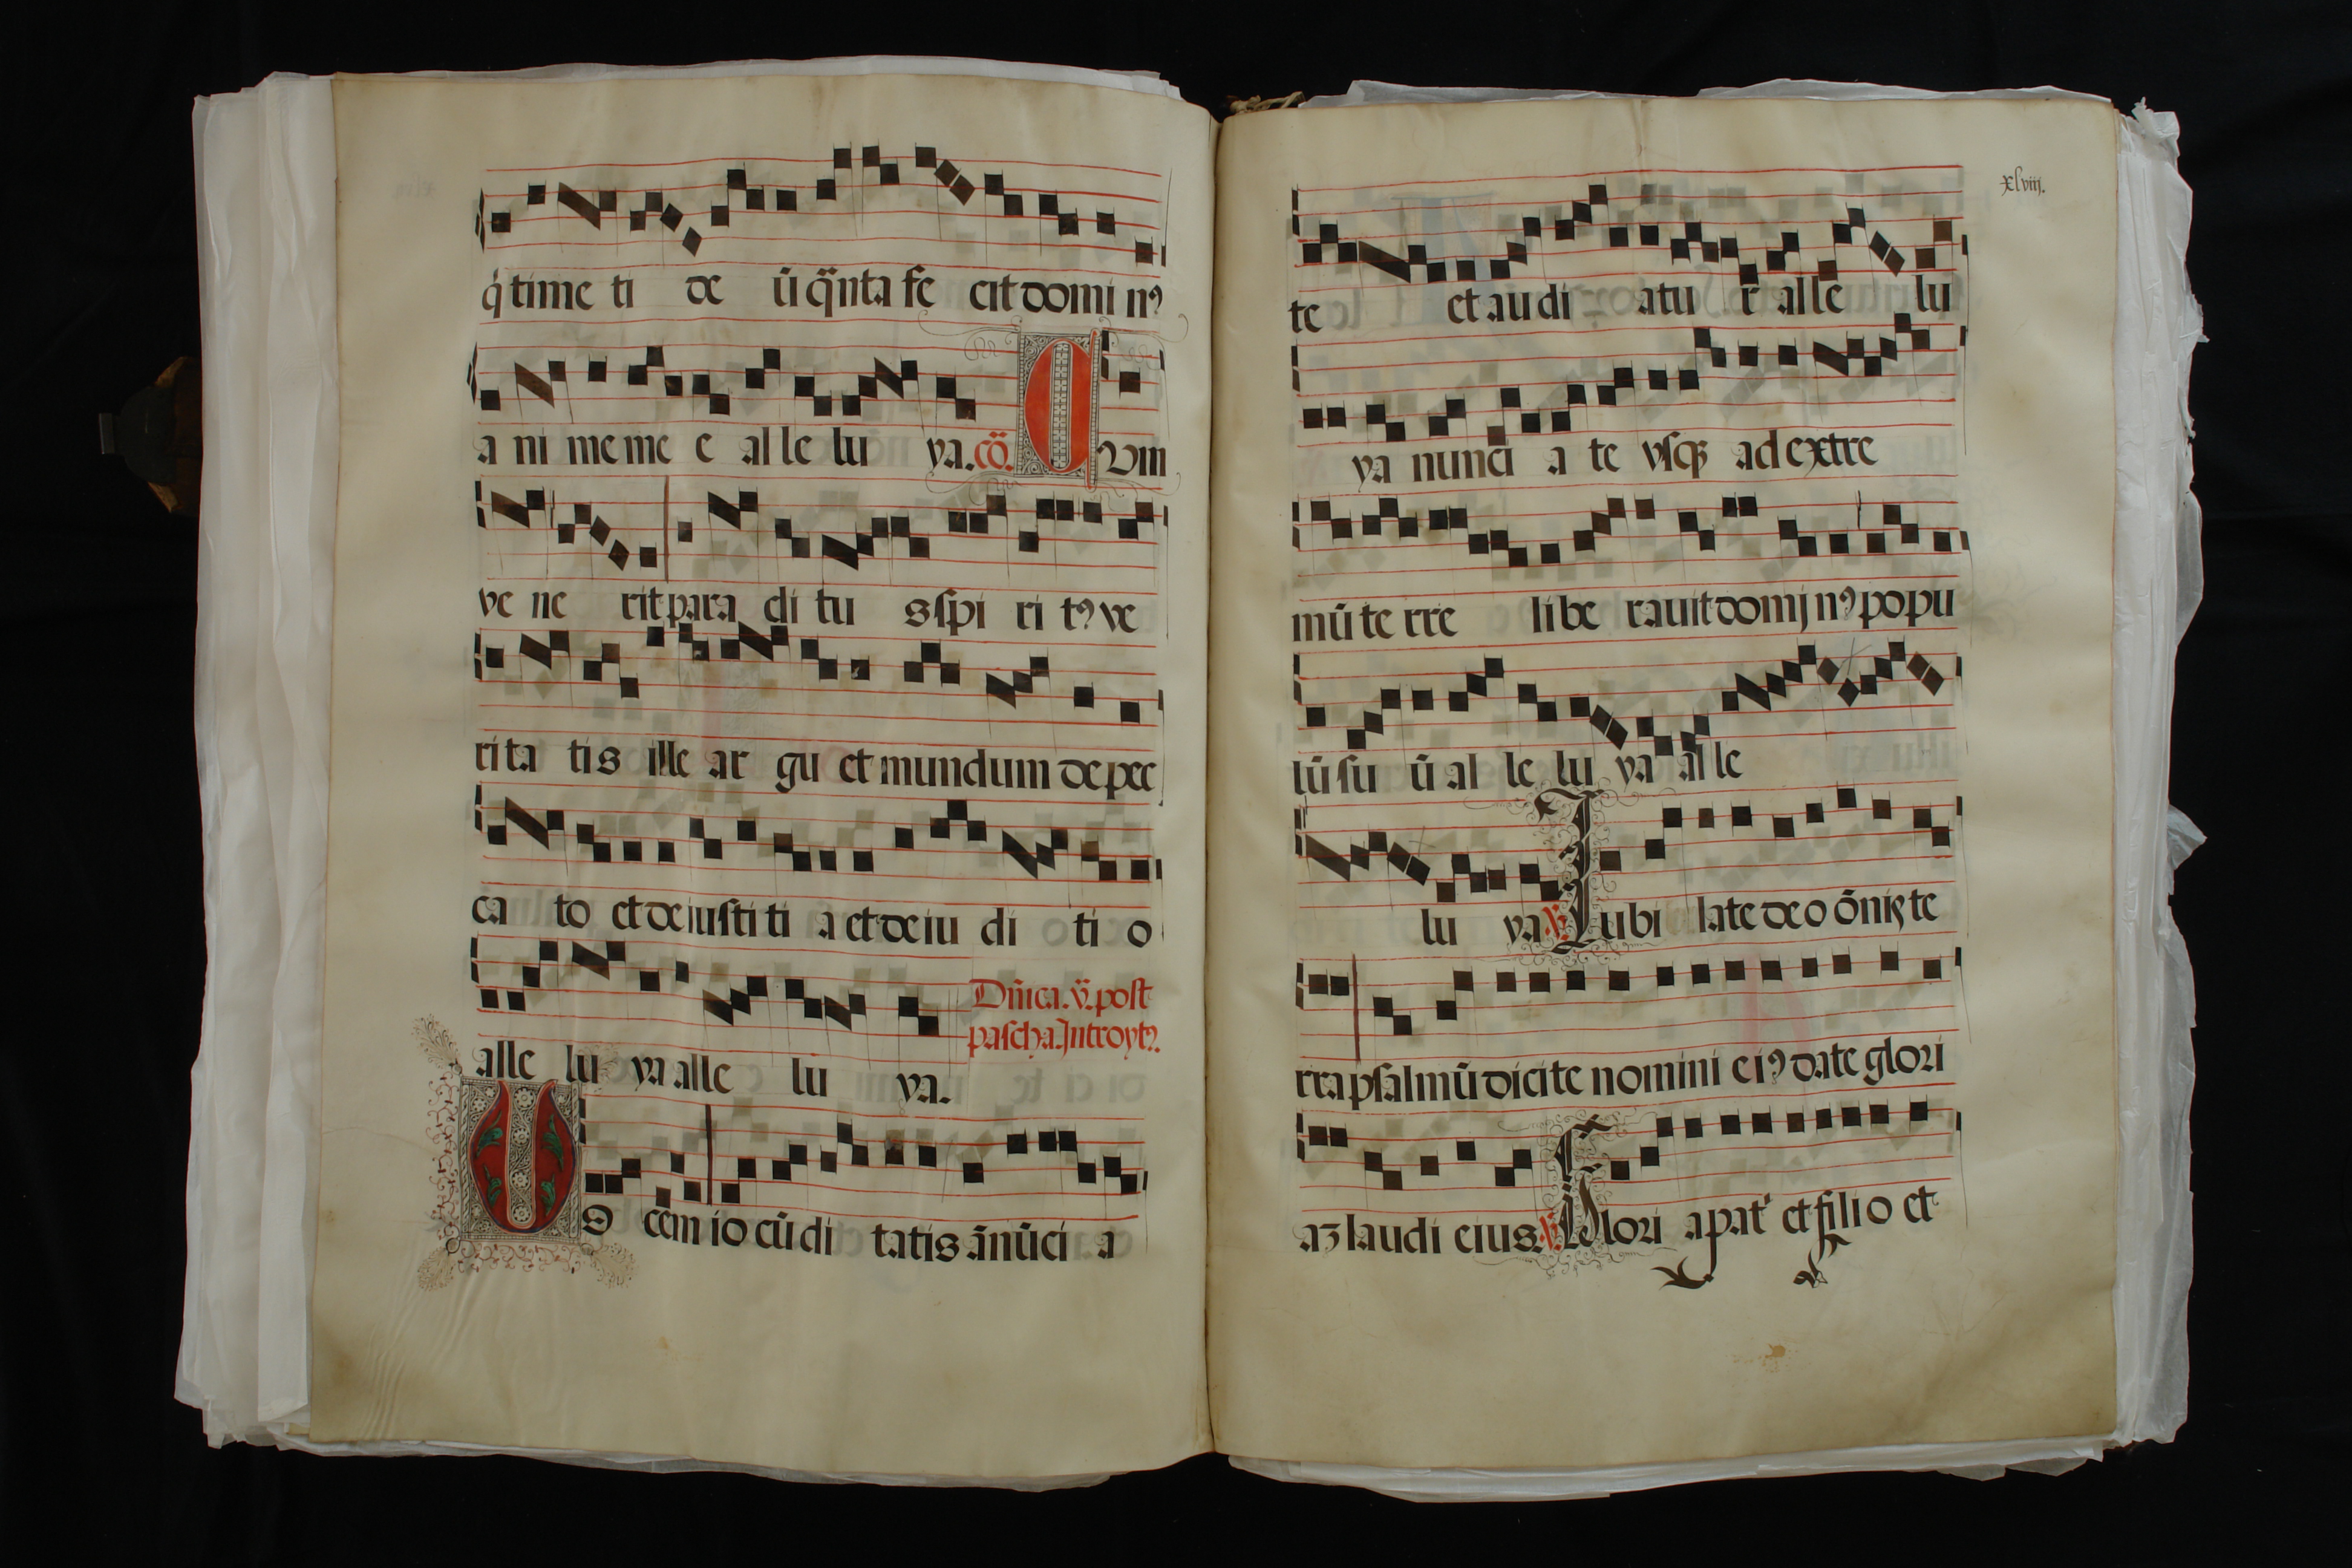 q̇ time ti de ū q̈nta fe cit domi nꝰ
a ni me me e al le lu ya. cō. C Vm
ve ne rit para di tu s ſpi ri tꝰ ve
rita tis ille ar gu et mundum de pec
ca to et de iuſti ti a et de iu di ti o
Dn̄ica. v̈. poſt
paſcha. Introytꝰ.
alle lu ya alle lu ya.
VO cem io cū di tatis ān̄ūci a
xlviij.
te et au di atu r al le lu
ya nunci a te vſqꝫ ad extre
mū te rre li be rauit domj nꝰ popu
lū ſu ū al le lu ya al le
lu ya ℣. Iubi late deo ōnis te
rra pſalmū dicite nomini eiꝰ date glori
aꝫ laudi eius. ℣. Glori a pat' et filio et